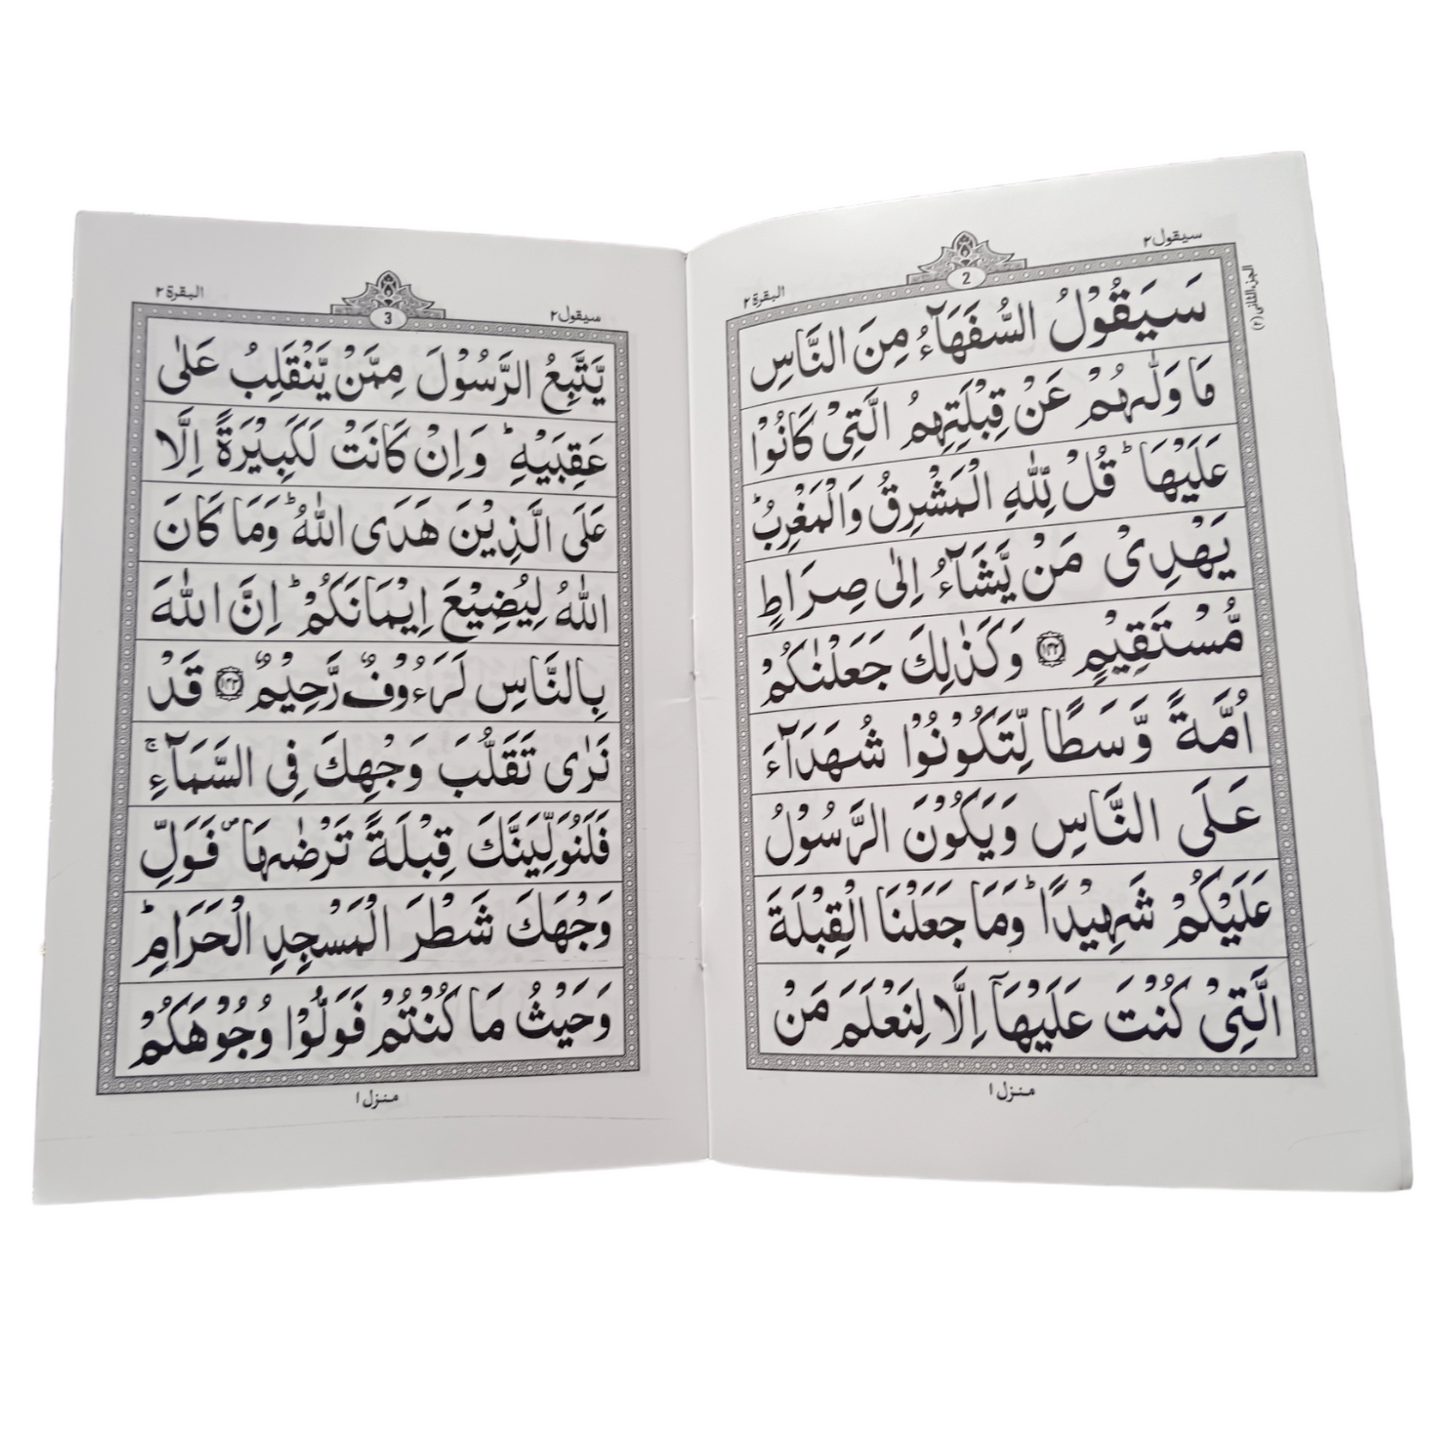 البقرة ٢
2
سيقول ٢
الجزء الثانی (٢)
سَيَقُوْلُ السُّفَهَآءُ مِنَ النَّاسِ
مَا وَلّٰىهُمْ عَنْ قِبْلَتِهِمُ الَّتِیْ كَانُوْا
عَلَيْهَا ؕ قُلْ لِّلّٰهِ الْمَشْرِقُ وَالْمَغْرِبُ ؕ
يَهْدِیْ مَنْ يَّشَآءُ اِلٰى صِرَاطٍ
مُّسْتَقِيْمٍ ﴿۱۴۲﴾ وَكَذٰلِكَ جَعَلْنٰكُمْ
اُمَّةً وَّسَطًا لِّتَكُوْنُوْا شُهَدَآءَ
عَلَى النَّاسِ وَيَكُوْنَ الرَّسُوْلُ
عَلَيْكُمْ شَهِيْدًا ؕ وَمَا جَعَلْنَا الْقِبْلَةَ
الَّتِیْ كُنْتَ عَلَيْهَاۤ اِلَّا لِنَعْلَمَ مَنْ
منزل ١
البقرة ٢
3
سيقول ٢
يَّتَّبِعُ الرَّسُوْلَ مِمَّنْ يَّنْقَلِبُ عَلٰى
عَقِبَيْهِ ؕ وَاِنْ كَانَتْ لَكَبِيْرَةً اِلَّا
عَلَى الَّذِيْنَ هَدَى اللّٰهُ ؕ وَمَا كَانَ
اللّٰهُ لِيُضِيْعَ اِيْمَانَكُمْ ؕ اِنَّ اللّٰهَ
بِالنَّاسِ لَرَءُوْفٌ رَّحِيْمٌ ﴿۱۴۳﴾ قَدْ
نَرٰى تَقَلُّبَ وَجْهِكَ فِى السَّمَآءِ ۚ
فَلَنُوَلِّيَنَّكَ قِبْلَةً تَرْضٰىهَا ۪ فَوَلِّ
وَجْهَكَ شَطْرَ الْمَسْجِدِ الْحَرَامِ ؕ
وَحَيْثُ مَا كُنْتُمْ فَوَلُّوْا وُجُوْهَكُمْ
منزل ١